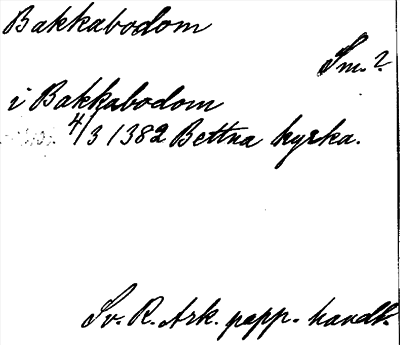 Bakkabodom
Sm.?
i Bakkabodom
4/3 1382 Bettna kyrka.
Sv. R. Ark. papp. handl.